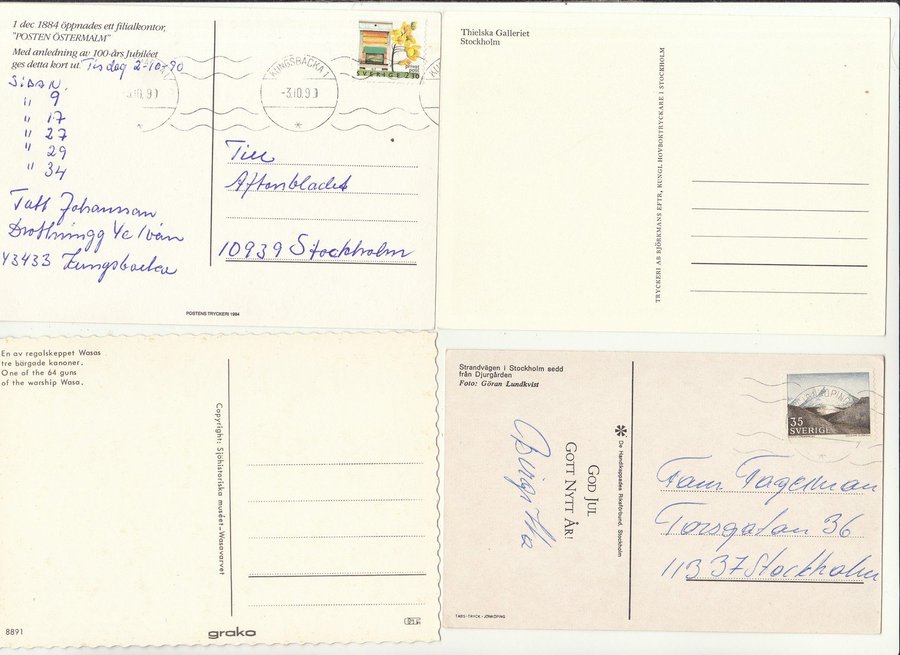 1 dec 1884 öppnades ett filialkontor,
"POSTEN ÖSTERMALM"
Med anledning av 100-års Jubiléet
ges detta kort ut. Tisdag 2-10-90
SiDAN
" 9
" 17
" 27
" 29
" 34
Johansson
Drottningg 4c
43433 Kungsbacka
KUNGSBACKA 1
-3.10.90
SVERIGE 2.30
Till
Aftonbladet
10939 Stockholm
POSTENS TRYCKERI 1984
Thielska Galleriet
Stockholm
TRYCKERI AB BJÖRKMANS EFTR, KUNGL HOVBOKTRYCKARE I STOCKHOLM
En av regalskeppet Wasas
tre bärgade kanoner.
One of the 64 guns
of the warship Wasa.
Copyright: Sjöhistoriska muséet-Wasavarvet
8891
grako
Strandvägen i Stockholm sedd
från Djurgården
Foto: Göran Lundkvist
GOD JUL
GOTT NYTT ÅR!
Birgitta
De Handikappades Riksförbund, Stockholm
35
SVERIGE
Fam Fagerman
Torsgatan 36
11337 Stockholm
TABS-TRYCK - JÖNKÖPING